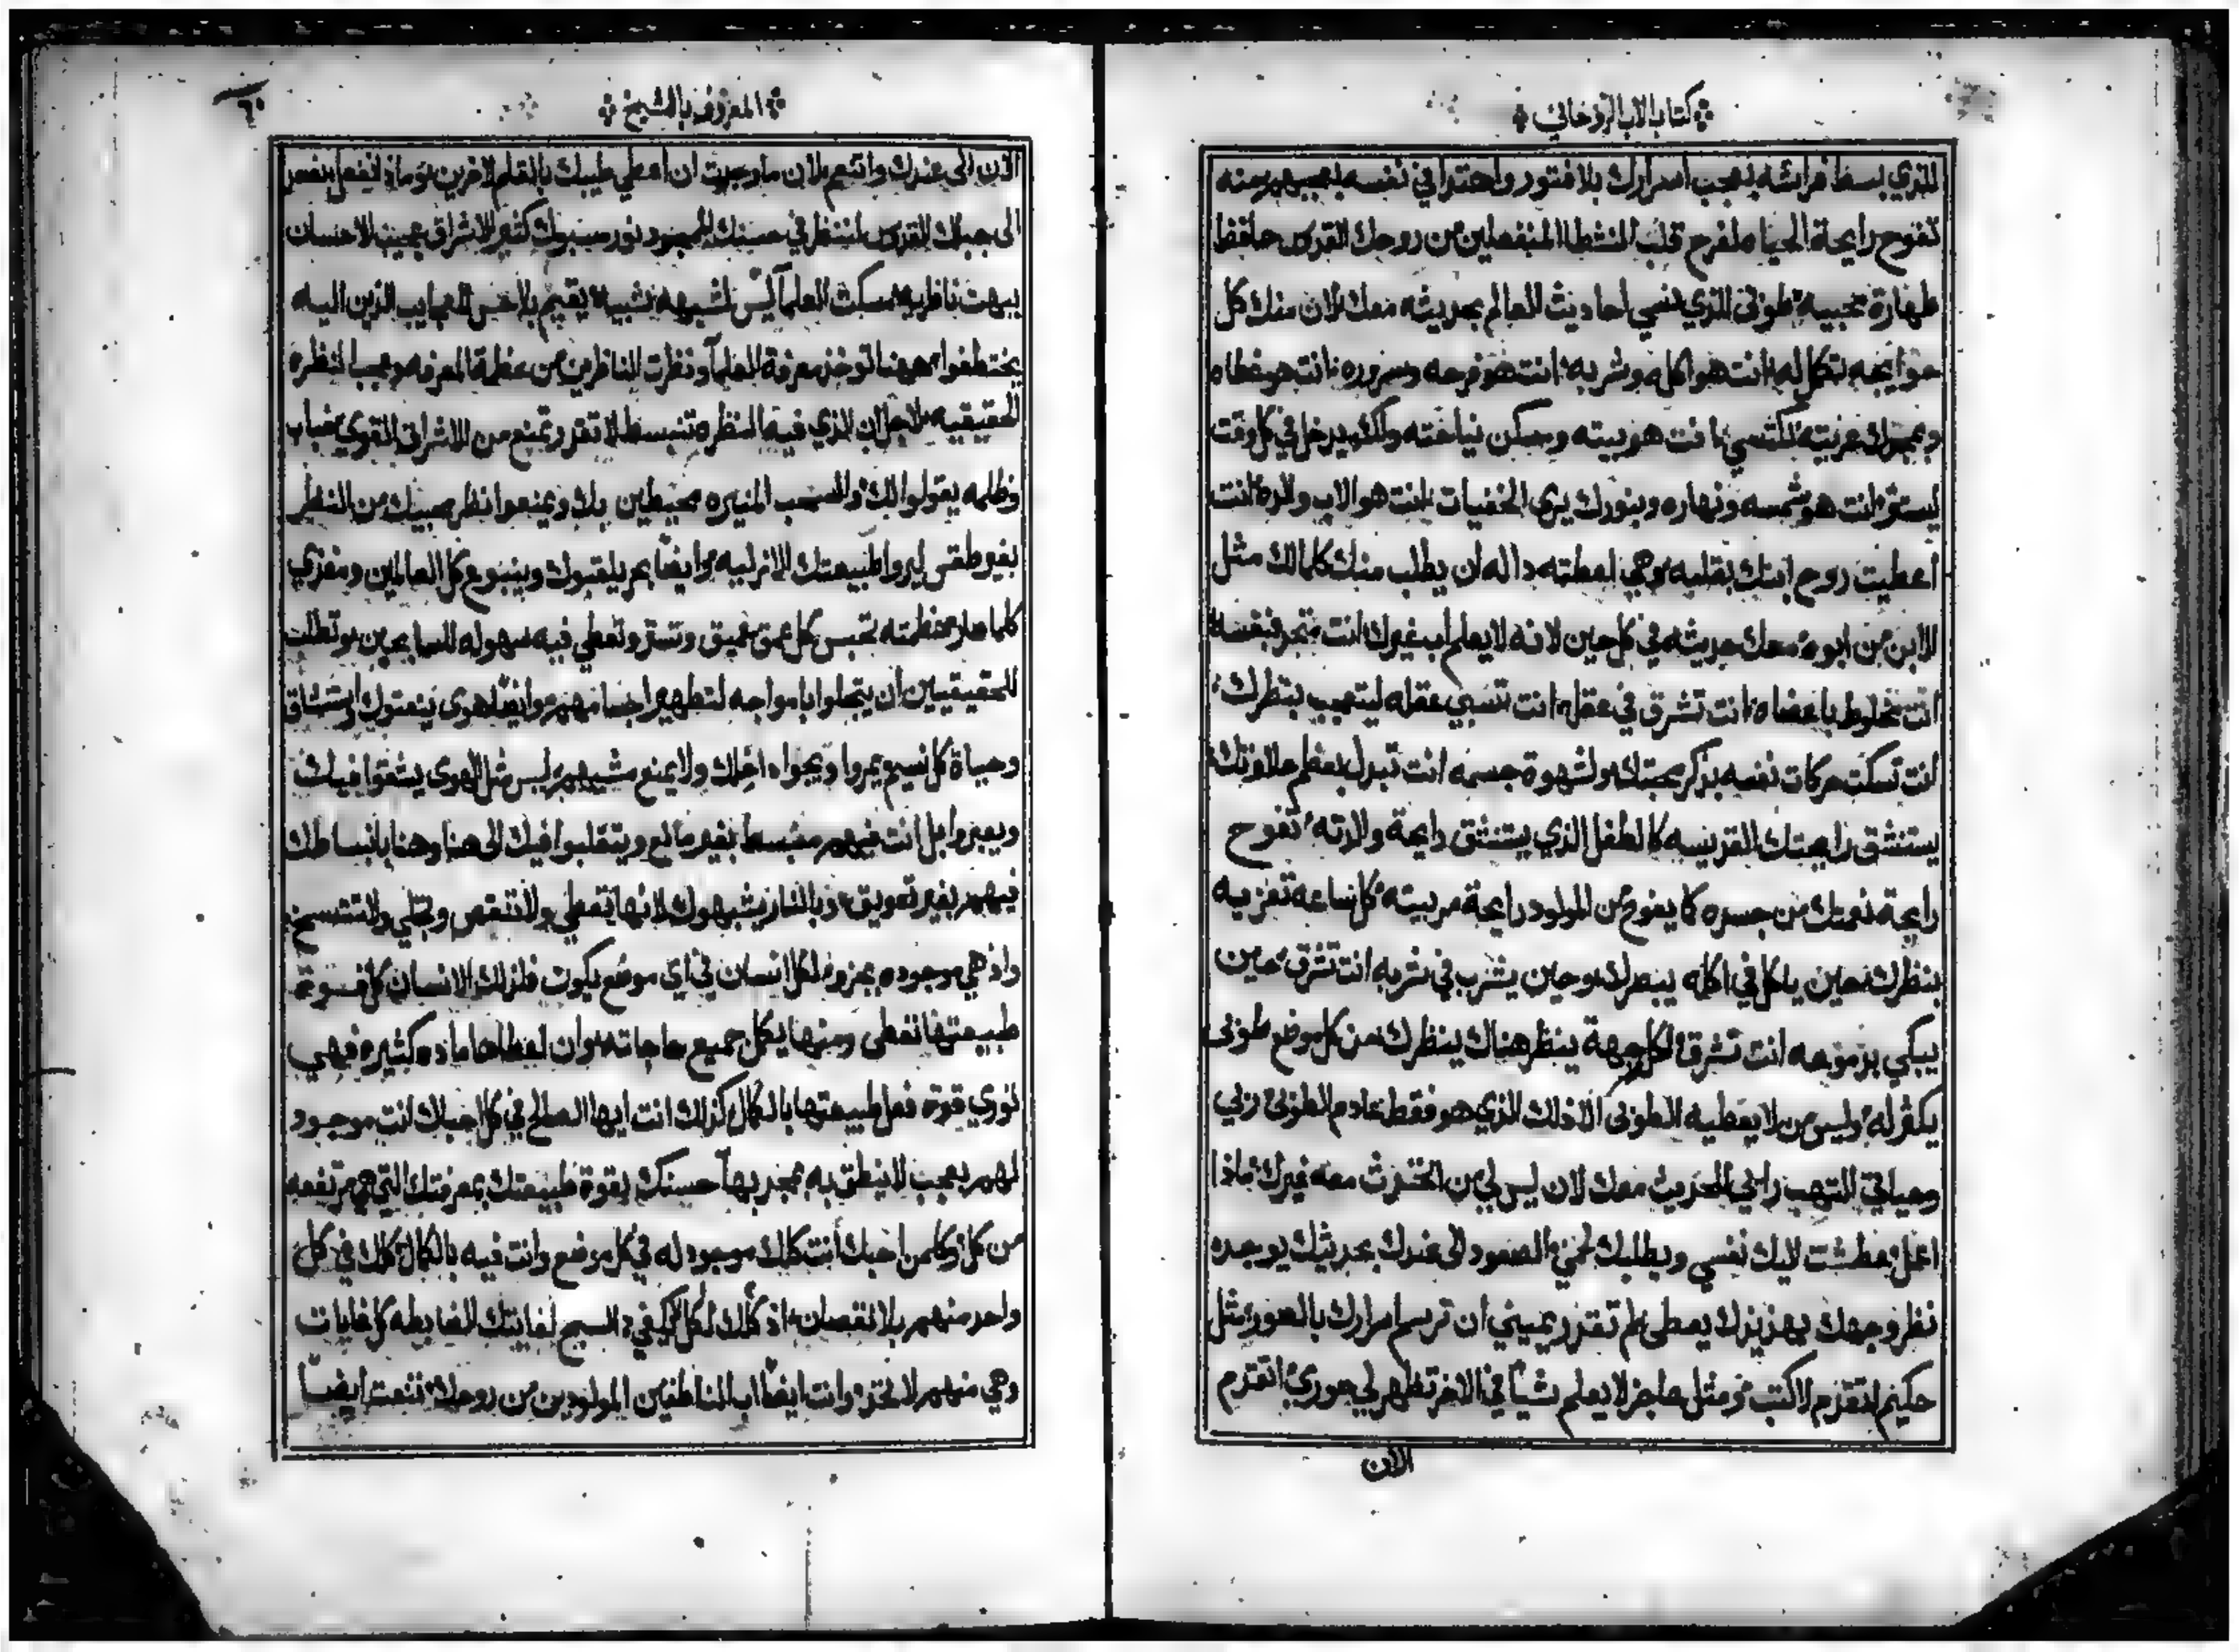 كتاب الاب الروحاني
للذي بسط فراشه بعجب اسرارك بلا فتور واحترا في نفسه بعجبهم منه
تفوح رايحة الحياه ملفرح قلب النشطا المنفعلين من روحك القدوس حافظ
طهارة محبيه طوبى للذي نسي احاديث العالم بحديثه معك لان منك كل
حوايجه تكمل له انت هو اكله وشربه انت هو فرحه وسروره انت هو غطاه
وبمجدك عريته تكتسي انت هو بيته ومسكن نياحته ولك يدخل في كل وقت
ليستتر انت هو شمسه ونهاره وبنورك يرى الخفيات انت هو الاب والده انت
اعطيت روح ابنك بقلبه وهي اعطته داله ان يطلب منك كلما لك مثل
الابن من ابوه معك حديثه في كل حين لانه لا يعلم اب غيرك انت متحد بنفسه
انت مخلوط باعضاه انت تشرق في عقله انت تسبي عقله ليتعجب بنظرك
انت تسكت حركات نفسه بذكر محبتك ولشهوة جسمه انت تبدل بعظم حلاوتك
يستنشق رايحتك القديسه كالطفل الذي يستنشق رايحة والدته تفوح
رايحة نعمتك من جسده كما يفوح من المولود رايحة مربيته كل ساعه تعزيه
بنظرك حين ياكل في اكله يبصرك وحين يشرب في شربه انت تشرق حين
يبكي بدموعه انت تشرق لكل جهة ينظر هناك ينظرك من كل موضع طوبى
يكثر له وليس من لا يعطيه الطوبى الا ذلك الذي هو فقط عادم الطوبى ربي
وحياتي التهب رايي للحديث معك لان ليس لي من اتحدث معه غيرك ماذا
اعمل عطشت اليك نفسي ويطلبك لحمي الصعود الى عندك بحديثك يوجده
نظر وجهك بهذيذك يعطى لم تقدر يميني ان ترسم اسرارك بالصور مثل
حكيم اتقدم لاكتب ومثل عاجز لا يعلم شياً في الاخر تظهر لي صوري اتقدم
الان
المعروف بالشيخ
٦٠
الان الى عندك واتنعم لان ما وجدت ان اعطي طيبك بالقلم لاخرين وماذا نفعل نصعد
الى جبلك القدوس لننظر في حسنك المجيد نور
يبهت ناظريه مسكت العلماء ليس لشبهه تشبيه
يختطفوا ههنا توخذ معرفة العلماء ونظرت الناظرين من عظمة المعرفه وعجب النظره
الحقيقيه لاجل ان الذي فيه النظره تنبسط لا تقدر وتمتنع من الاشراق القوي ضباب
وظلمه يقولوا لك والسحب المنيره محيطين بك ويمنعوا نظر محبيك من النظر
بغير طقس ليروا طبيعتك الازليه وايضاً بحر يلقبوك وينبوع كل العالمين ومغذي
كلما هلاو عظمته تحبس كل عمق عميق وتستر وتعطي فيه سهوله للسابحين وتطلب
للحقيقيين ان يتجلوا بامواجه لتطهير اجسامهم وايضاً هوى ينعتوك استنشاق
وحياة كل نسيم يمروا ويجوا داخلك ولا يمنع مشيهم ليس مثل الهوى يشقوا فيك
ويعبروا بل انت فيهم منبسط بغير مانع ويتقلبوا فيك الى هنا وهنا بانبساطك
فيهم بغير تعويق وبالنار يشبهوك لانها تعطي ولا تنقص وتجلي ولا تتسخ
واذ هي موجوده بجزو لكل انسان في اي موضع يكون فلذلك الانسان كل قوة
طبيعتها تعطى ومنها يكمل جميع حاجاته وان اعطاها ماده كثيره فهي
توري قوة فعل طبيعتها بالكمال كذلك انت ايها الصالح في كل احباك انت موجود
لهم بعجب لا ينطق به بمجد بهاء حسنك بقوة طبيعتك بمعرفتك التي هي مرتفعه
من كل وكل من احبك انت كلك موجود له في كل موضع وانت فيه بالكمال كلك في كل
واحد منهم بلا نقصان اذ كلك لكل السبح لغايتك الضابطه كل غايات
وهي منهم لا تحد وانت ايضاً اب للناطقين المولودين من روحك تنعت ايضاً